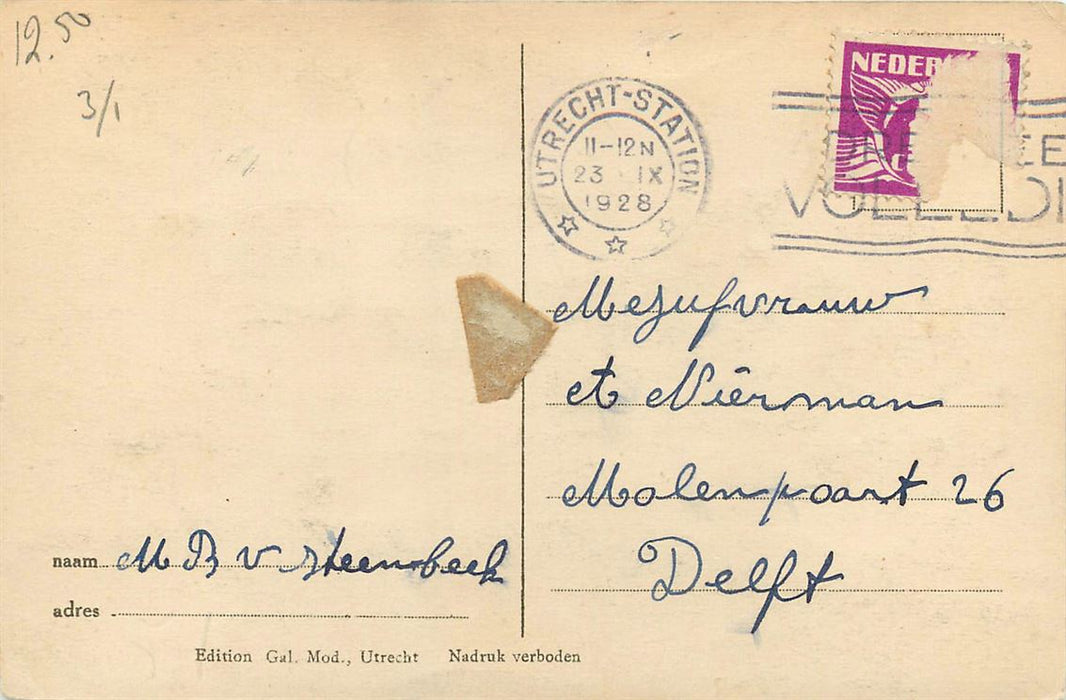 12.50
3/1
NEDER
UTRECHT-STATION
11-12N
23 IX
1928
Mejufvrouw
A Niërman
Molenpoort 26
Delft
naam M B v Steenbeek
adres
Edition Gal. Mod., Utrecht Nadruk verboden